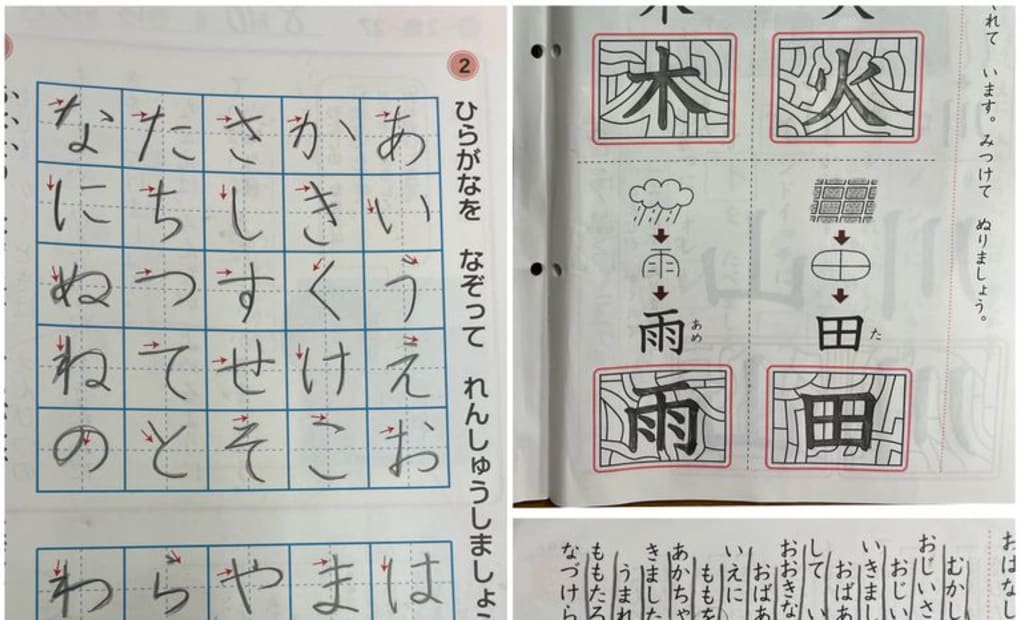 2
ひらがなを なぞって れんしゅうしましょ
あいうえお
かきくけこ
さしすせそ
たちつてと
なにぬねの
は
ま
や
ら
わ
れて います。みつけて ぬりましょう。
火
田 た
田
木
雨 あめ
雨
おはなし
むかし
おじいさ
おじい
いきまし
おばあ
して い
おおきな
おばあ
いえに
ももを
あかちゃ
きました
うまれ
ももたろ
なづけら